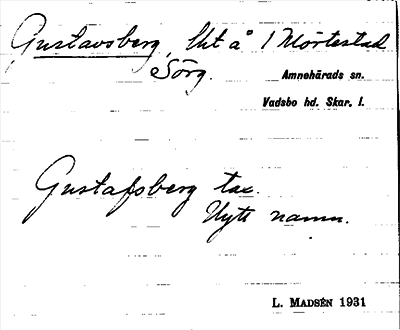 Gustavsberg, lht å 1 Mörtestad
Sörg.
Amnehärads sn.
Vadsbo hd. Skar. l.
Gustafsberg tax.
Nytt namn.
L. MADSÉN 1931